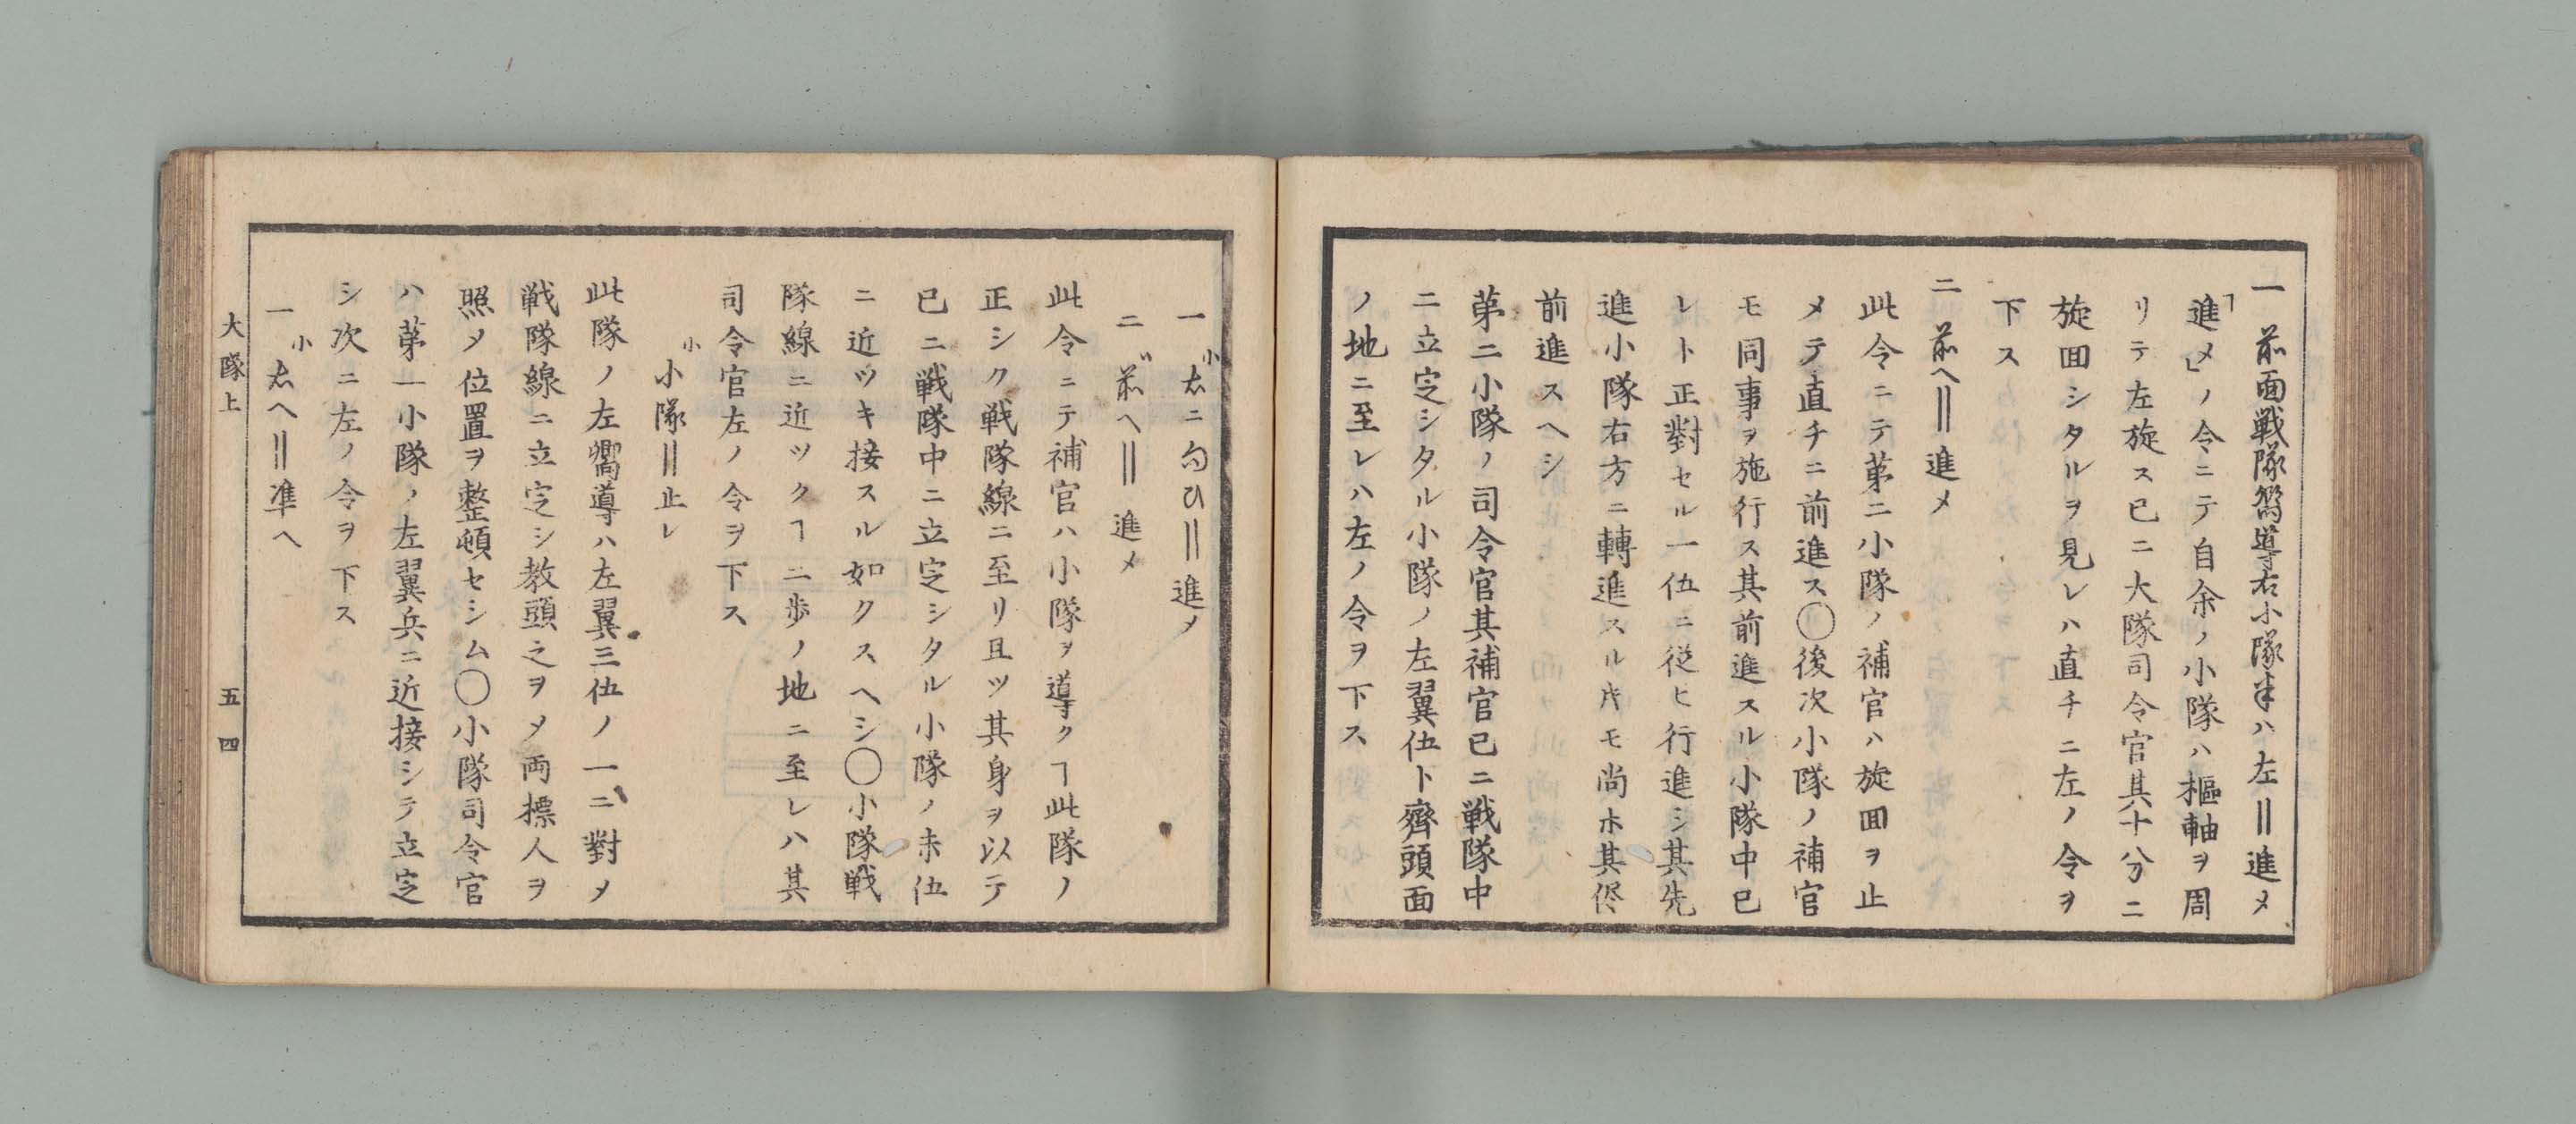 一 前面戦隊嚮導右小隊半ハ左‖進メ
「進メ」ノ令ニテ自余ノ小隊ハ樞軸ヲ周
リテ左旋ス已ニ大隊司令官其十分ニ
旋囬シタルヲ見レハ直チニ左ノ令ヲ
下ス
二 前へ‖進メ
此令ニテ第二小隊ノ補官ハ旋囬ヲ止
メテ直チニ前進ス〇後次小隊ノ補官
モ同事ヲ施行ス其前進スル小隊中已
レト正對セル一伍ニ従ヒ行進シ其先
進小隊右方ニ轉進スル𪜈モ尚ホ其侭
前進スヘシ
第二小隊ノ司令官其補官已ニ戦隊中
ニ立定シタル小隊ノ左翼伍ト齊頭面
ノ地ニ至レハ左ノ令ヲ下ス
一 小右ニ匀ヒ‖進メ
二 〃前へ‖進メ
此令ニテ補官ハ小隊ヲ導クヿ此隊ノ
正シク戦隊線ニ至リ且ツ其身ヲ以テ
已ニ戦隊中ニ立定シタル小隊ノ末伍
ニ近ツキ接スル如クスヘシ〇小隊戦
隊線ニ近ツクヿ二歩ノ地ニ至レハ其
司令官左ノ令ヲ下ス
小 小隊‖止レ
此隊ノ左嚮導ハ左翼三伍ノ一ニ對メ
戦隊線ニ立定シ教頭之ヲメ両標人ヲ
照メ位置ヲ整頓セシム〇小隊司令官
ハ第一小隊ノ左翼兵ニ近接シテ立定
シ次ニ左ノ令ヲ下ス
一 小右へ‖準へ
大隊上 五四